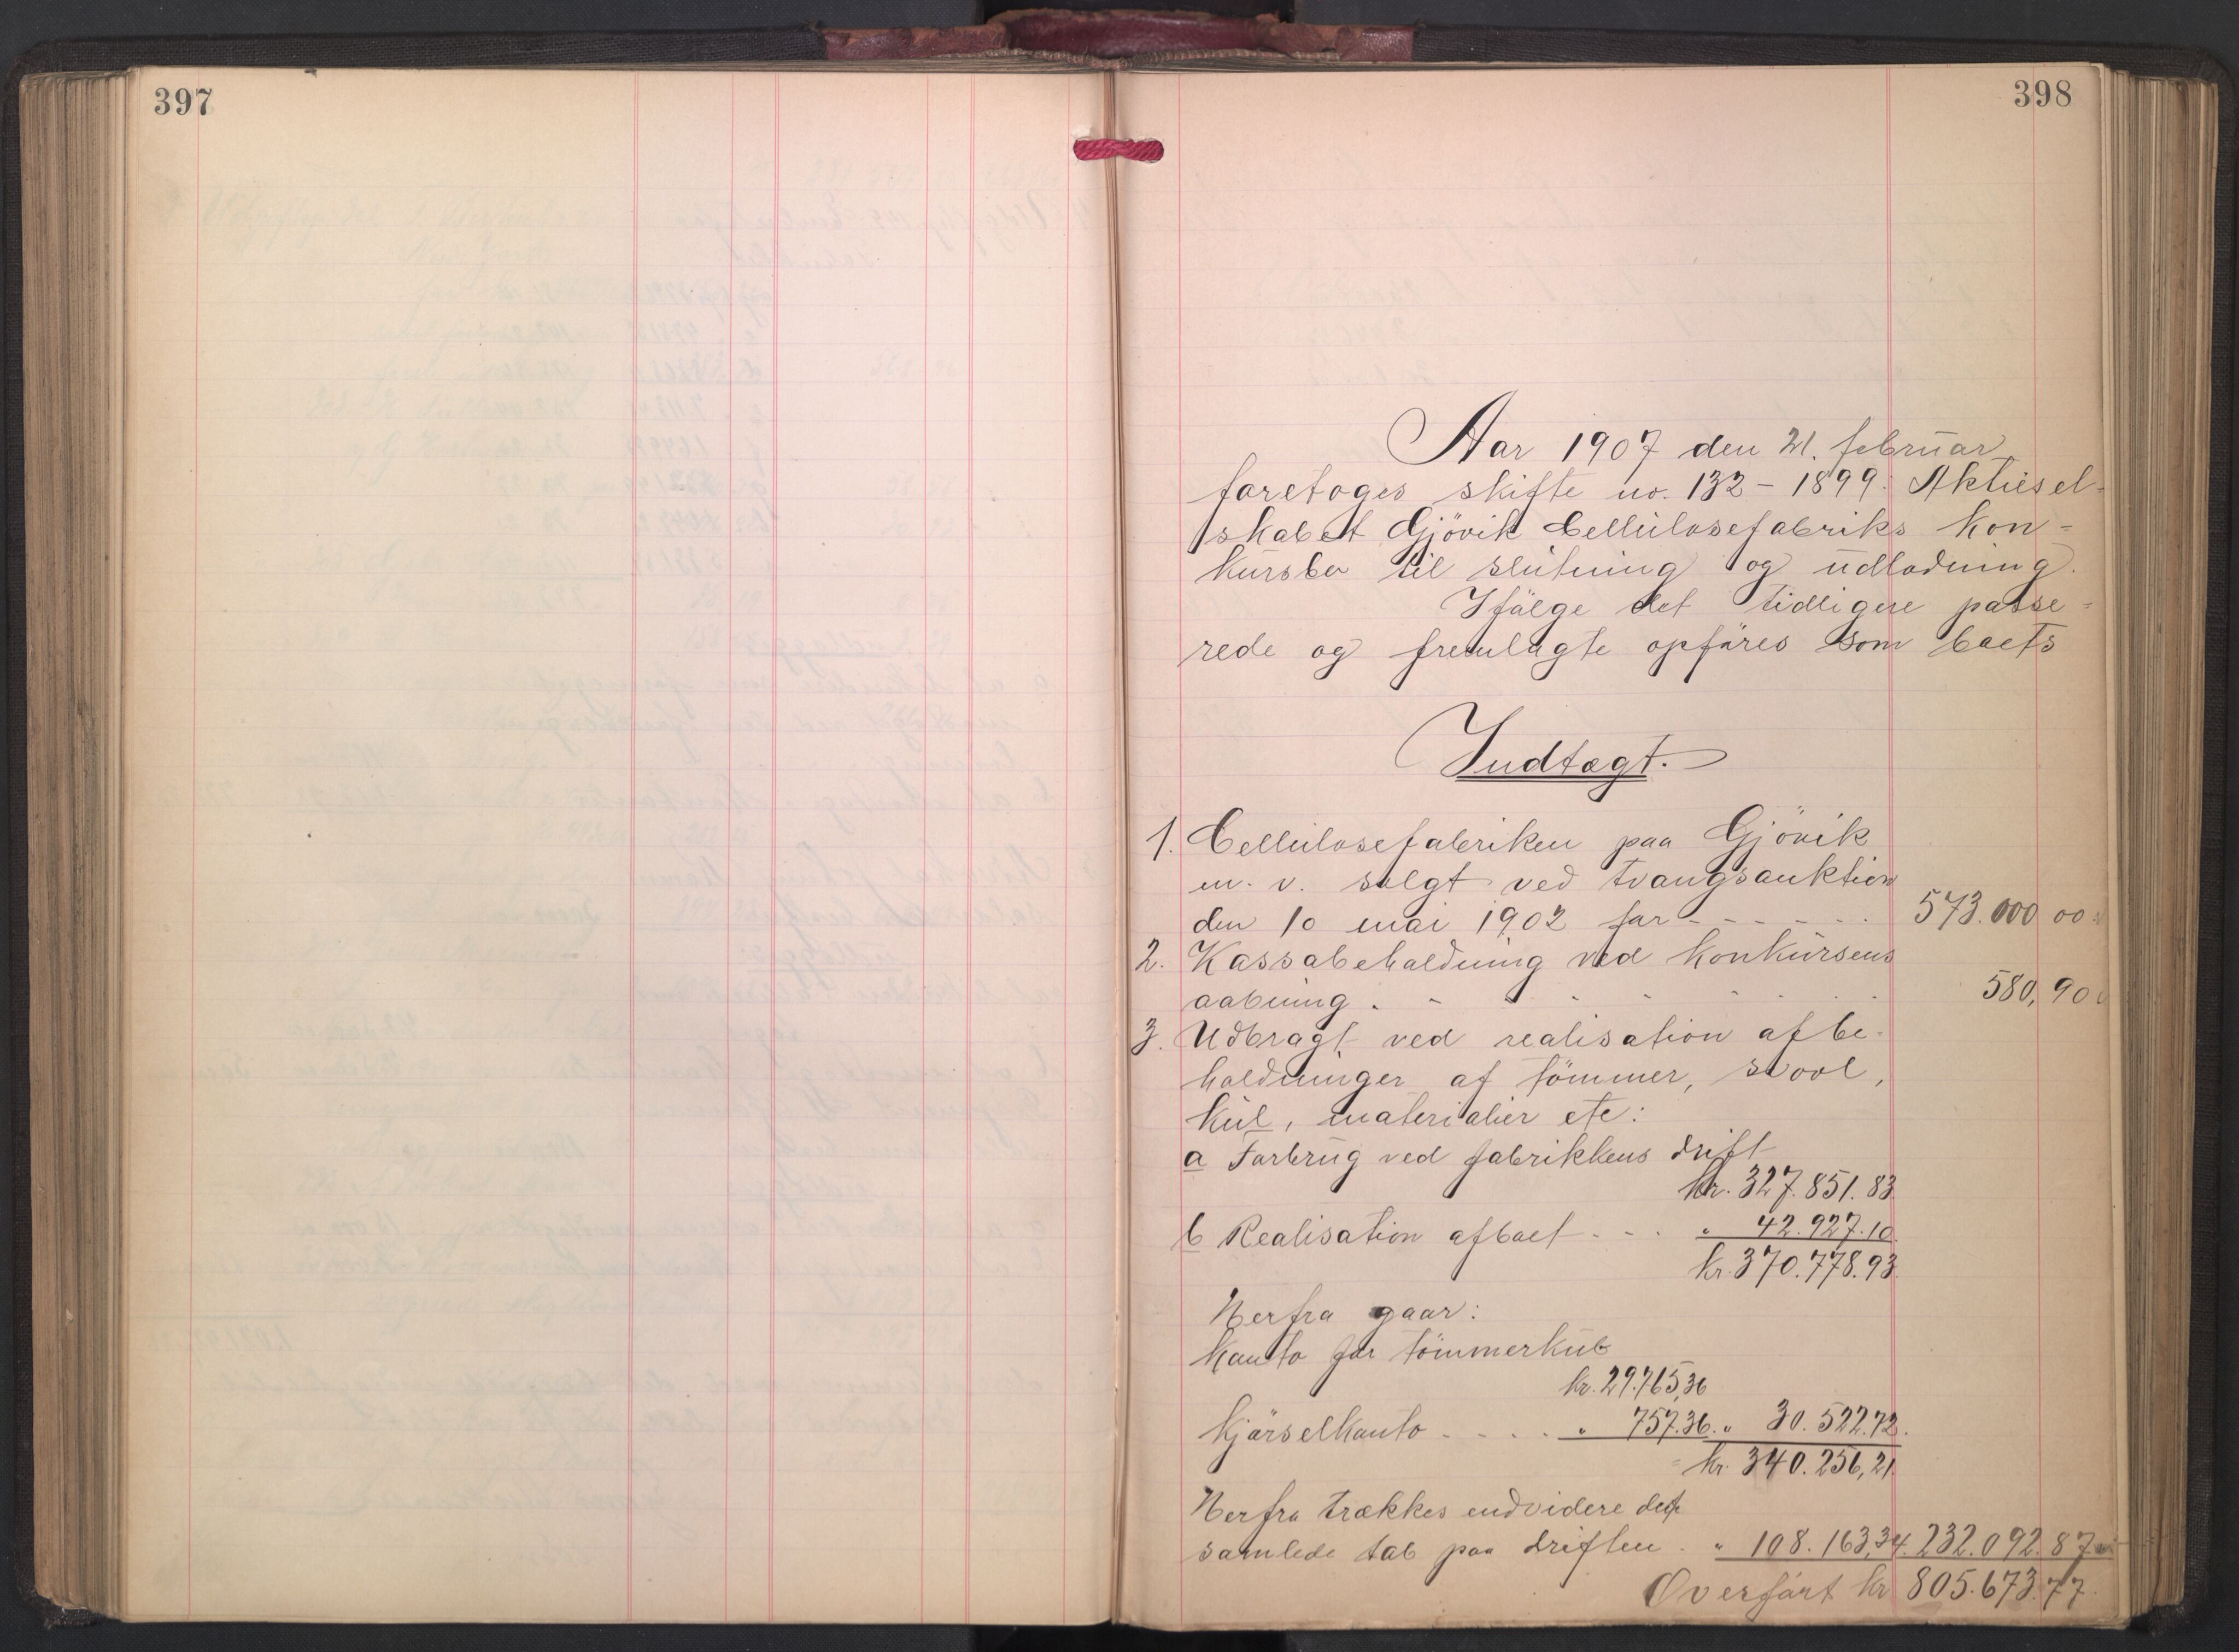 397
398
Aar 1907 den 21. februar
foretoges skifte no. 132 - 1899. Aktiesel-
skabet Gjövik Cellulosefabriks kon-
kursbo til slutning og udlodning.
Ifölge det tidligere passe-
rede og fremlagte opföres som boets
Indtægt.
1. Cellulosefabriken paa Gjövik
m. v. solgt ved tvangsauktion
den 10 mai 1902 for - - - - - - 573.000 00
2. Kassabeholdning ved konkursens
aabning . - - - - - - - 580, 90
3. Udbragt ved realisation af be-
holdninger af tömmer, svovl,
kul, materialier etc:
a Forbrug ved fabrikkens drift
kr. 327.851.83
b Realisation af boet - - . " 42.927.10
kr. 370.778.93
Herfra gaar:
Konto for tömmerkub
kr. 29.765,36
Kjörselkonto - - - - . " 757.36. " 30.522.72.
kr. 340.256,21
Herfra trækkes endvidere det
samlede tab paa driften . " 108.163,34. 232.092.87
Overfört kr 805.673.77.